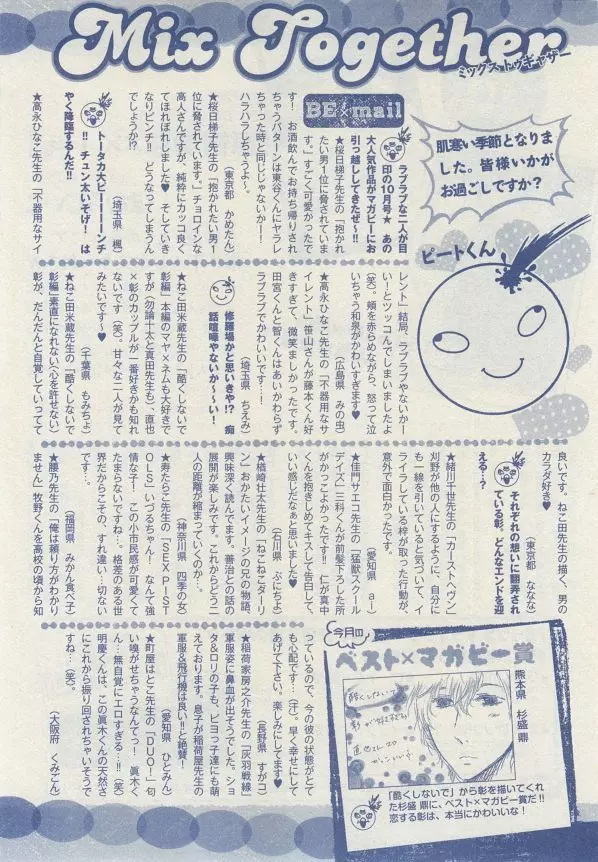 Mix Together
ミックストゥギャザー
肌寒い季節となりま
した。皆様いかが
お過ごしですか?
ビートくん
BE×mail
ラブラブな二人が目
印の10月号★あの
大人気作品がマガビーにお
引っ越ししてきたぜ〜!!
★桜日梯子先生の「抱かれ
たい男1位に脅されていま
す。」すごく可愛かったで
す!お酒飲んでお持ち帰りされ
ちゃうパターンは東谷くんにヤラレ
ちゃった時と同じじゃないかー!
ハラハラしちゃうよ〜。
(東京都 かめたん)
★桜日梯子先生の「抱かれたい男1
位に脅されています。」チョコインな
高人さんですが、純粋にカッコ良く
てほれぼれしました♥そしていき
なりピンチ!!どうなってしまうん
でしょうか!?
(埼玉県 楓)
トータカ大ピーーーンチ
!!チュン太いそげ!は
やく降臨するんだ!!
★高永ひなこ先生の「不器用なサイ
レント」結局、ラブラブやないかー
い!とツッコんでしまいましたよ
(笑)。頬を赤らめながら、怒って泣
いちゃう和泉がかわいすぎます♥
(広島県 みの虫)
★高永ひなこ先生の「不器用なサ
イレント」笹山さんが藤本くん好
きすぎて、微笑ましかったです。
田宮くんと智くんはあいかわらず
ラブラブでかわいいです…!
(埼玉県 ちえみ)
修羅場かと思いきや!?痴
話喧嘩やないか〜〜い!
★ねこ田米蔵先生の「酷くしないで
彰編」本編のマヤ×ネムも大好きで
すが(勿論十太と真田先生も)、直也
×彰のカップルが一番好きかも知れ
ないです(笑)。甘々な二人が見て
みたいです〜♥
(千葉県 もみちょ)
★ねこ田米蔵先生の「酷くしないで
彰編」素直になれない(心を許せない)
彰が、だんだんと自覚していってて
良いです。ねこ田先生の描く、男の
カラダ好き♥
(東京都 ななな)
それぞれの想いに翻弄され
ている彰、どんなエンドを迎
える…?
★緒川千世先生の「カーストヘヴン」
刈野が他の人にするように、自分に
も一線を引いていると気づいて、イ
ライラしている梓が取った行動が、
意外で面白かったです。
(愛知県 aー)
★佳門サエコ先生の「猛獣スクール
デイズ」三科くんが前髪下ろした所
がかっこよかったです!!仁が真中
くんを抱きしめてキスして告白して、
いい感じだなぁと思いました♥
(石川県 ぷにちよ)
★楢崎壮太先生の「ねこねこダーリ
ン」おかたいイメージの兄の物語、
興味深く読んでます。善治との話の
展開が楽しみです。これからどう二
人の距離が縮まっていくのか…。
(神奈川県 四季の女)
★寿たらこ先生の「SEX PIST
OLS」いづるちゃん!なんて強
情な子!この小市民感が可愛くて
たまらないですね…。格差のある世
界だからこその、すれ違い…切ない
です…。
(福岡県 みかん食べ子)
★腰乃先生の「俺は頼り方がわかり
ません」牧野くんを高校の頃から知
っているので、今の彼の状態がとて
も心配です…(汗)。早く幸せにして
あげて下さい、楽しみにしてます♥
(長野県 すがコ)
★稲荷家房之介先生の「灰羽戦線」
軍服姿に鼻血が出そうでした。ショ
タ&ロリの子も、ピヨっ子達にも萌
えております。息子が稲荷屋先生の
軍服&飛行機は良い!!と絶賛!
(愛知県 ひとみん)
★町屋はとこ先生の「DUO!」匂
い嗅がせちゃうなんてっ!眞木く
ん…無自覚にエロすぎる…!!(笑)
明慶くんは、この眞木くんの天然さ
にこれから振り回されちゃいそうで
すね…(笑)。
(大阪府 くみごん)
今月の
ベスト×マガビー賞
熊本県 杉盛 鼎
酷くしないで
「酷くしないで」から彰を描いてくれ
た杉盛 鼎に、ベスト×マガビー賞だ!!
恋する彰は、本当にかわいいな!